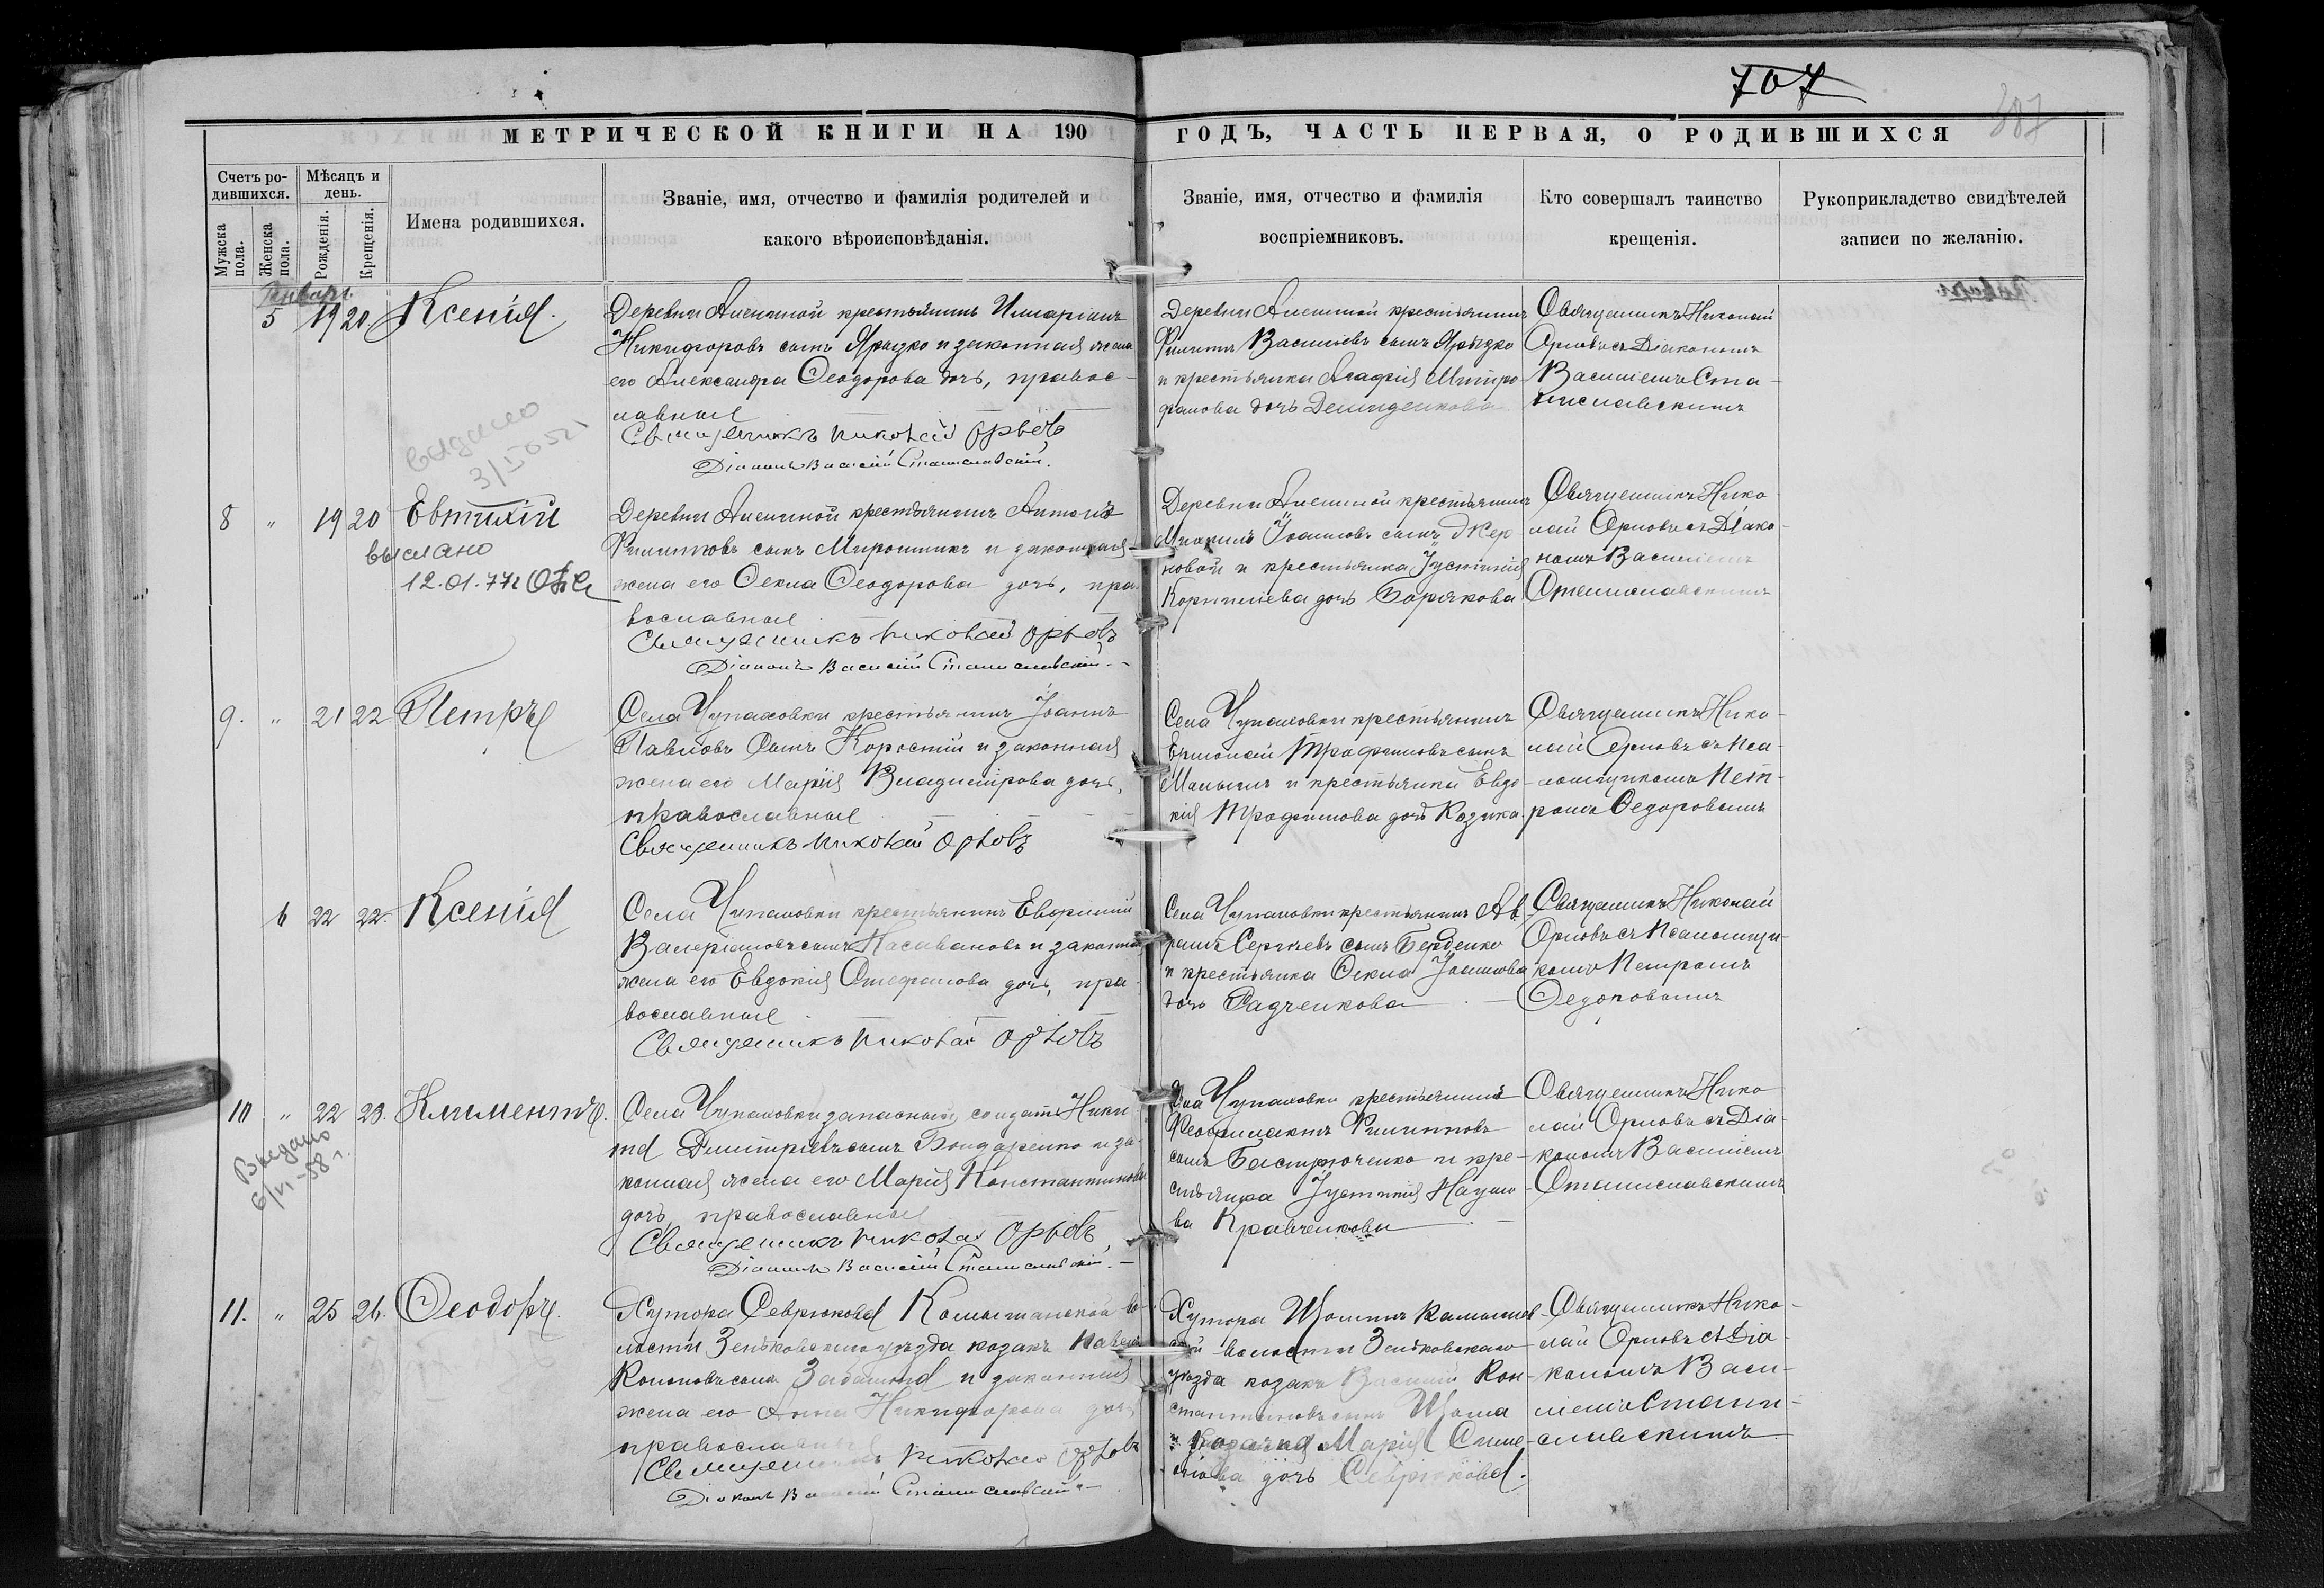 707
307
МЕТРИЧЕСКОЙ КНИГИ НА 190
ГОДЪ, ЧАСТЬ ПЕРВАЯ, О РОДИВШИХСЯ
Счетъ ро-
дившихся.
Мужска
пола.
Женска
пола.
Мѣсяцъ и
день.
Рожденія.
Крещенія.
Имена родившихся.
Званіе, имя, отчество и фамилія родителей и
какого вѣроисповѣданія.
Званіе, имя, отчество и фамилія
воспріемниковъ.
Кто совершалъ таинство
крещенія.
Рукоприкладство свидѣтелей
записи по желанію.
Январь.
5 19 20 Ксенія.
Деревни крестьянинъ Илларіонъ
Никифоровъ сынъ Ярызко и законная жена
его Александра Ѳеодорова дочь, правос-
лавные
Священникъ Николай Орловъ
Діаконъ Василій Станиславскій.
Деревни крестьянинъ
Филиппъ Василіевъ сынъ Ярызко
и крестьянка Агафія Митро-
фанова дочь Демиденкова
Священникъ Николай
Орловъ съ Діакономъ
Василіемъ Ста-
ниславскимъ
выдано
8 " 19 20 Евтихій
выслано
12.01.77г
Деревни крестьянинъ Антоній
Филипповъ сынъ Мирошникъ и законная
жена его Ѳекла Ѳеодорова дочь, пра-
вославные
Священникъ Николай Орловъ
Діаконъ Василій Станиславскій.
Деревни крестьянинъ
Іоанновъ сынъ Жер
новой и крестьянка Іустинія
Корниліева дочь Борякова
Священникъ Нико-
лай Орловъ съ Діако-
номъ Василіемъ
Станиславскимъ
9. " 21 22 Петръ
Села Чупаховки крестьянинъ Іоаннъ
Павловъ сынъ Коростій и законная
жена его Марія Владимірова дочь,
православные
Священникъ Николай Орловъ
Села Чупаховки крестьянинъ
Ермолай Трофимовъ сынъ
и крестьянка Евдо-
кія Трофимова дочь Козика.
Священникъ Нико-
лай Орловъ съ Пса-
ломщикомъ Пет-
ромъ Ѳедоровымъ
6 22 22. Ксенія
Села Чупаховки крестьянинъ Евфимій
Валеріановъ сынъ и законная
жена его Евдокія Стефанова дочь, пра-
вославные
Священникъ Николай Орловъ
Села Чупаховки крестьянинъ Ав
рамъ Сергѣевъ сынъ Берденко
и крестьянка Ѳекла Іоаннова
дочь Радченкова
Священникъ Николай
Орловъ съ Псаломщи-
комъ Петромъ
Ѳедоровымъ
10 " 22 23. Климентъ.
Выдано
Села Чупаховки запасный солдатъ Ники
та Димитріевъ сынъ Бондаренко и за-
конная жена его Марія Константинова
дочь, православные
Священникъ Николай Орловъ,
Діаконъ Василій Станиславскій.
Села Чупаховки крестьянинъ
Ѳеофилактъ Филипповъ
сынъ Быстрюченко и кре-
стьянка Іустинія Наумо-
ва Кравченкова
Священникъ Нико
лай Орловъ съ Діа-
кономъ Василіемъ
Станиславскимъ
11. " 25 26. Ѳеодоръ.
Хутора Севрюкова Комышанской во-
лости Зеньковскаго уѣзда козакъ Павелъ
Кононовъ сынъ и законная
жена его Анна Никифорова дочь
православные
Священникъ Николай Орловъ
Діаконъ Василій Станиславскій
Хутора
волости Зеньковскаго
уѣзда козакъ Василій Кон-
стантиновъ сынъ
и козачка Марія
дочь Севрюкова.
Священникъ Нико-
лай Орловъ съ Діа-
кономъ Васи-
ліемъ Стани-
славскимъ